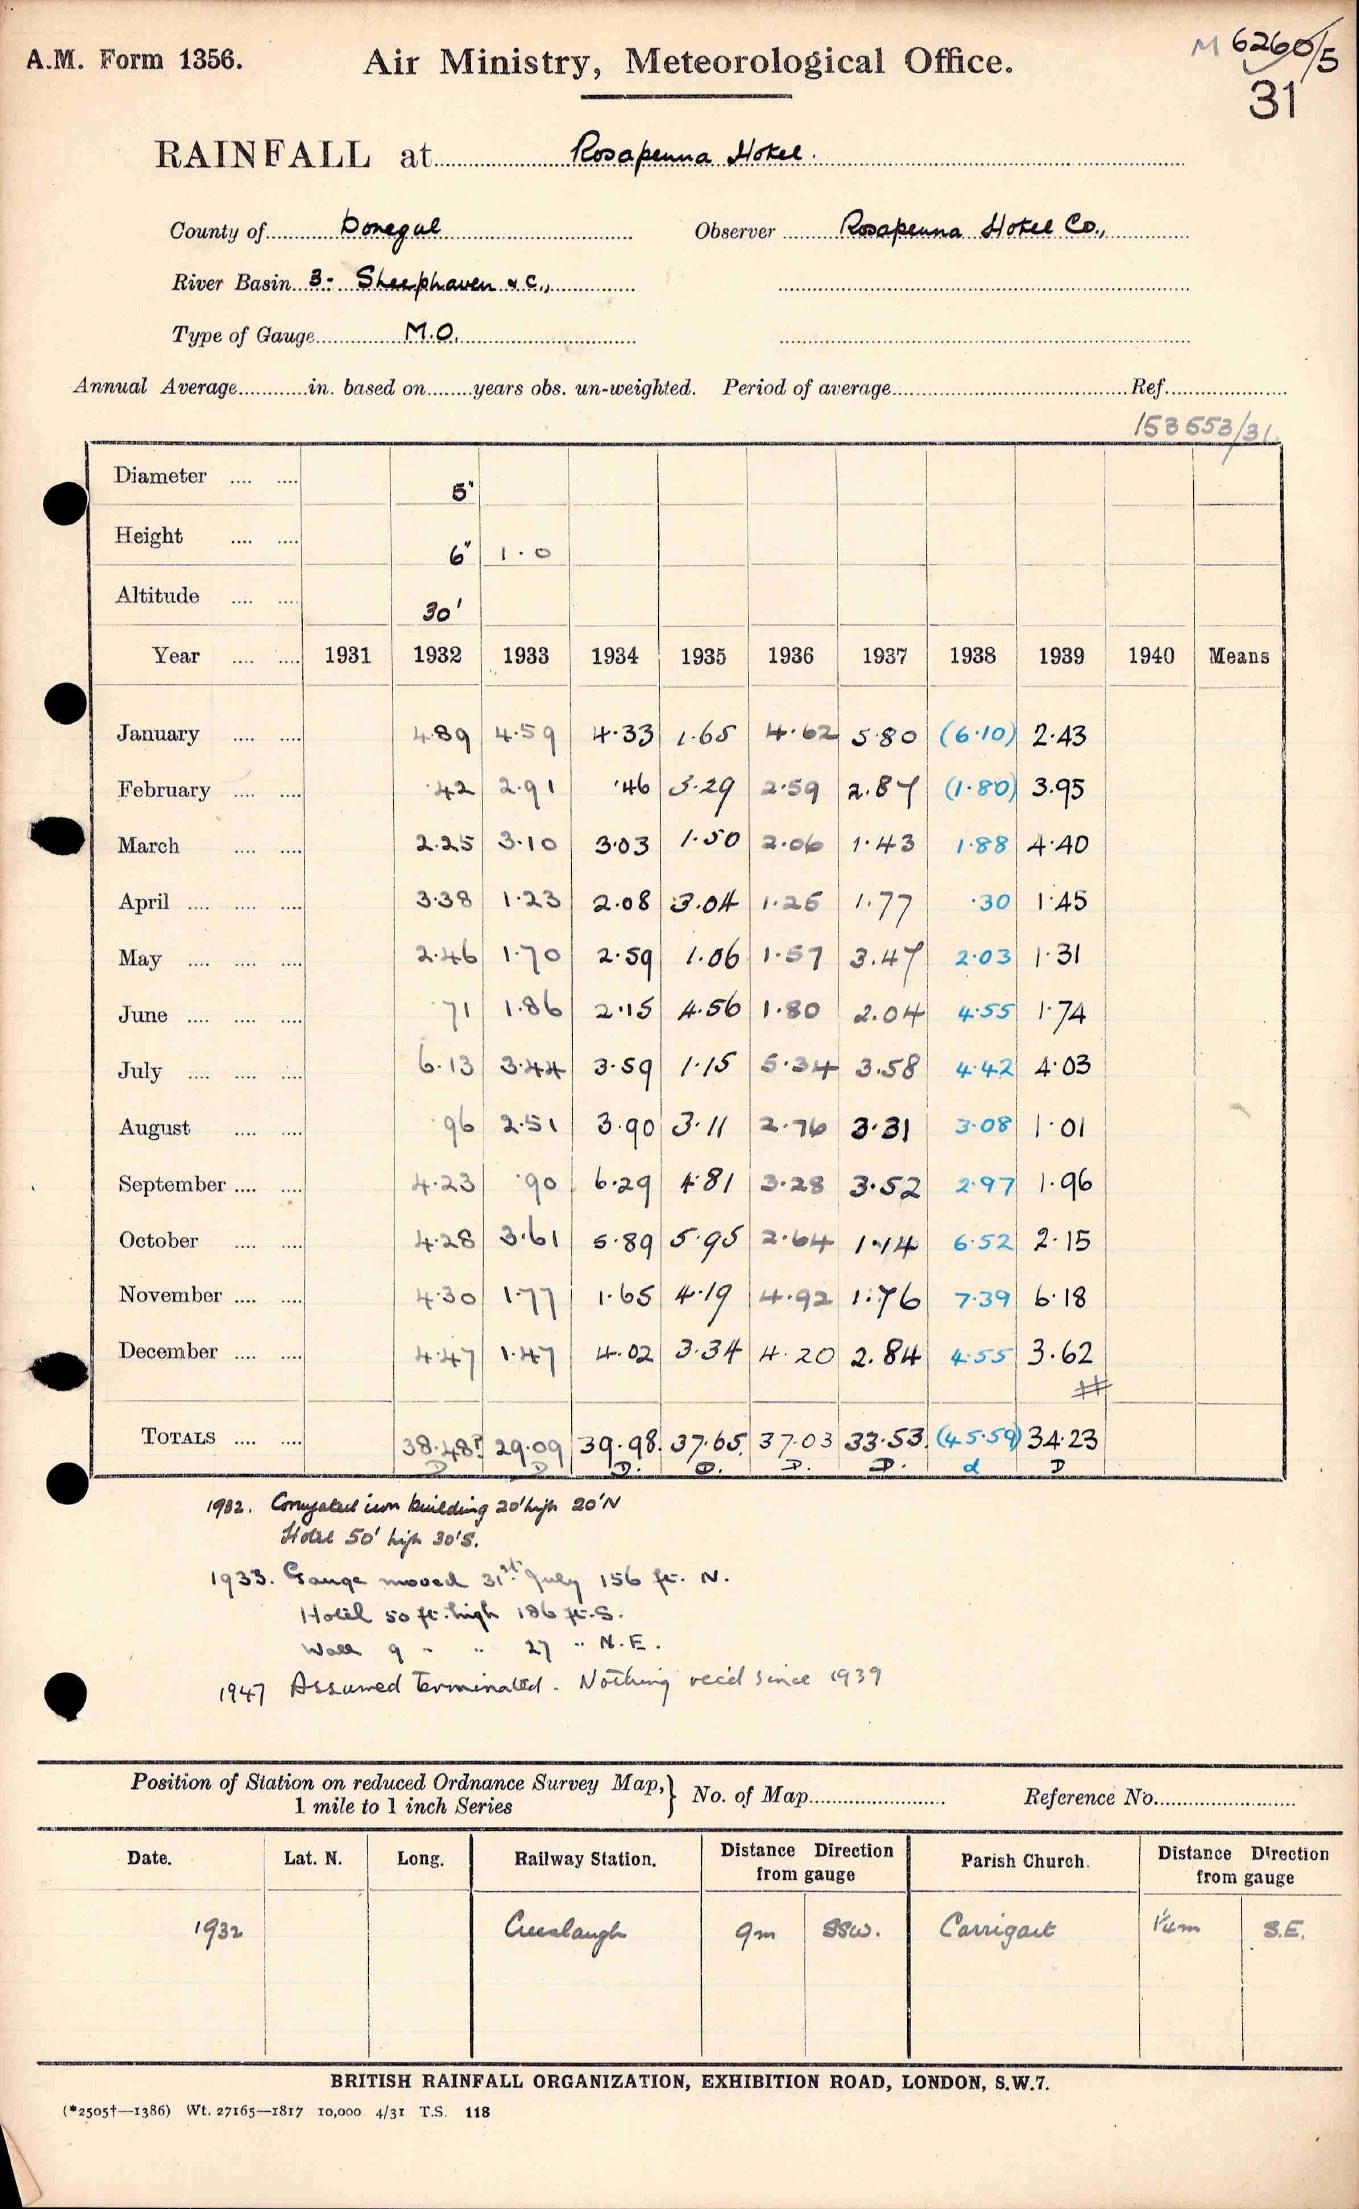 A.M. Form 1356.
Air Ministry, Meteorological Office.
M 6260/5
31
RAINFALL at Rosapenna Hotel.
County of Donegal Observer Rosapenna Hotel Co.,
River Basin 3- Sheephaven & c.,
Type of Gauge M.O.
Annual Average in. based on years obs. un-weighted. Period of average Ref.
153553/31
Diameter 5"
Height 6" 1.0
Altitude 30'
Year 1931 1932 1933 1934 1935 1936 1937 1938 1939 1940 Means
January 4.89 4.59 4.33 1.65 4.62 5.80 (6.10) 2.43
February .42 2.91 .46 3.29 2.59 2.87 (1.80) 3.95
March 2.25 3.10 3.03 1.50 2.06 1.43 1.88 4.40
April 3.38 1.23 2.08 3.04 1.25 1.77 .30 1.45
May 2.46 1.70 2.59 1.06 1.57 3.47 2.03 1.31
June .71 1.86 2.15 4.56 1.80 2.04 4.55 1.74
July 6.13 3.44 3.59 1.15 5.34 3.58 4.42 4.03
August .96 2.51 3.90 3.11 2.76 3.31 3.08 1.01
September 4.23 .90 6.29 4.81 3.28 3.52 2.97 1.96
October 4.28 3.61 5.89 5.95 2.64 1.14 6.52 2.15
November 4.30 1.77 1.65 4.19 4.92 1.76 7.39 6.18
December 4.47 1.47 4.02 3.34 4.20 2.84 4.55 3.62
#
TOTALS 38.48? 29.09 39.98. 37.65. 37.03 33.53. (45.59) 34.23
D D D. D. D. D. d D
1932. Corrugated iron building 20' high 20' N
Hotel 50' high 30' S.
1933. Gauge moved 31st July 156 ft. N.
Hotel 50 ft. high 186 ft. S.
Wall 9 " " 27 " N.E.
1947 Assumed Terminated. Nothing rec'd since 1939
Position of Station on reduced Ordnance Survey Map,} No. of Map Reference No.
1 mile to 1 inch Series
Date. Lat. N. Long. Railway Station. Distance Direction from gauge Parish Church. Distance Direction from gauge
1932 Creeslaugh 9m SSW. Carrigart 1/4m S.E.
BRITISH RAINFALL ORGANIZATION, EXHIBITION ROAD, LONDON, S.W.7.
(*2505†—1386) Wt. 27165—1817 10,000 4/31 T.S. 118